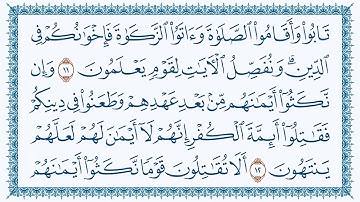 تَابُوا۟ وَأَقَامُوا۟ ٱلصَّلَوٰةَ وَءَاتَوُا۟ ٱلزَّكَوٰةَ فَإِخْوَٰنُكُمْ فِى
ٱلدِّينِ ۗ وَنُفَصِّلُ ٱلْءَايَٰتِ لِقَوْمٍ يَعْلَمُونَ ١١ وَإِن
نَّكَثُوٓا۟ أَيْمَٰنَهُم مِّنۢ بَعْدِ عَهْدِهِمْ وَطَعَنُوا۟ فِى دِينِكُمْ
فَقَٰتِلُوٓا۟ أَئِمَّةَ ٱلْكُفْرِ ۙ إِنَّهُمْ لَآ أَيْمَٰنَ لَهُمْ لَعَلَّهُمْ
يَنتَهُونَ ١٢ أَلَا تُقَٰتِلُونَ قَوْمًا نَّكَثُوٓا۟ أَيْمَٰنَهُمْ